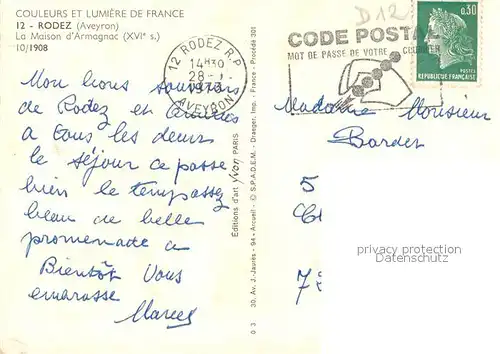 COULEURS ET LUMIÈRE DE FRANCE
12 - RODEZ (Aveyron)
La Maison d'Armagnac (XVIe s.)
10/1908
12 RODEZ R.P.
14H30
28 -
1973
AVEYRON
D12
CODE POSTAL
MOT DE PASSE DE VOTRE COURRIER
0,30
REPUBLIQUE FRANÇAISE
Mon bons souvenirs
de Rodez et
a tous les deux
le séjour ce passe
bien le temp assez
beau de belle
promenade a
Bientôt Vous
emarasse
Marcel
Editions d'art Yvon PARIS
0 3 30, Av. J.-Jaurès - 94 - Arcueil - © S.P.A.D.E.M. - Draeger, Imp. - France - Procédé 301
Madame Monsieur
Bardet
5
7
privacy protection
privacy protection